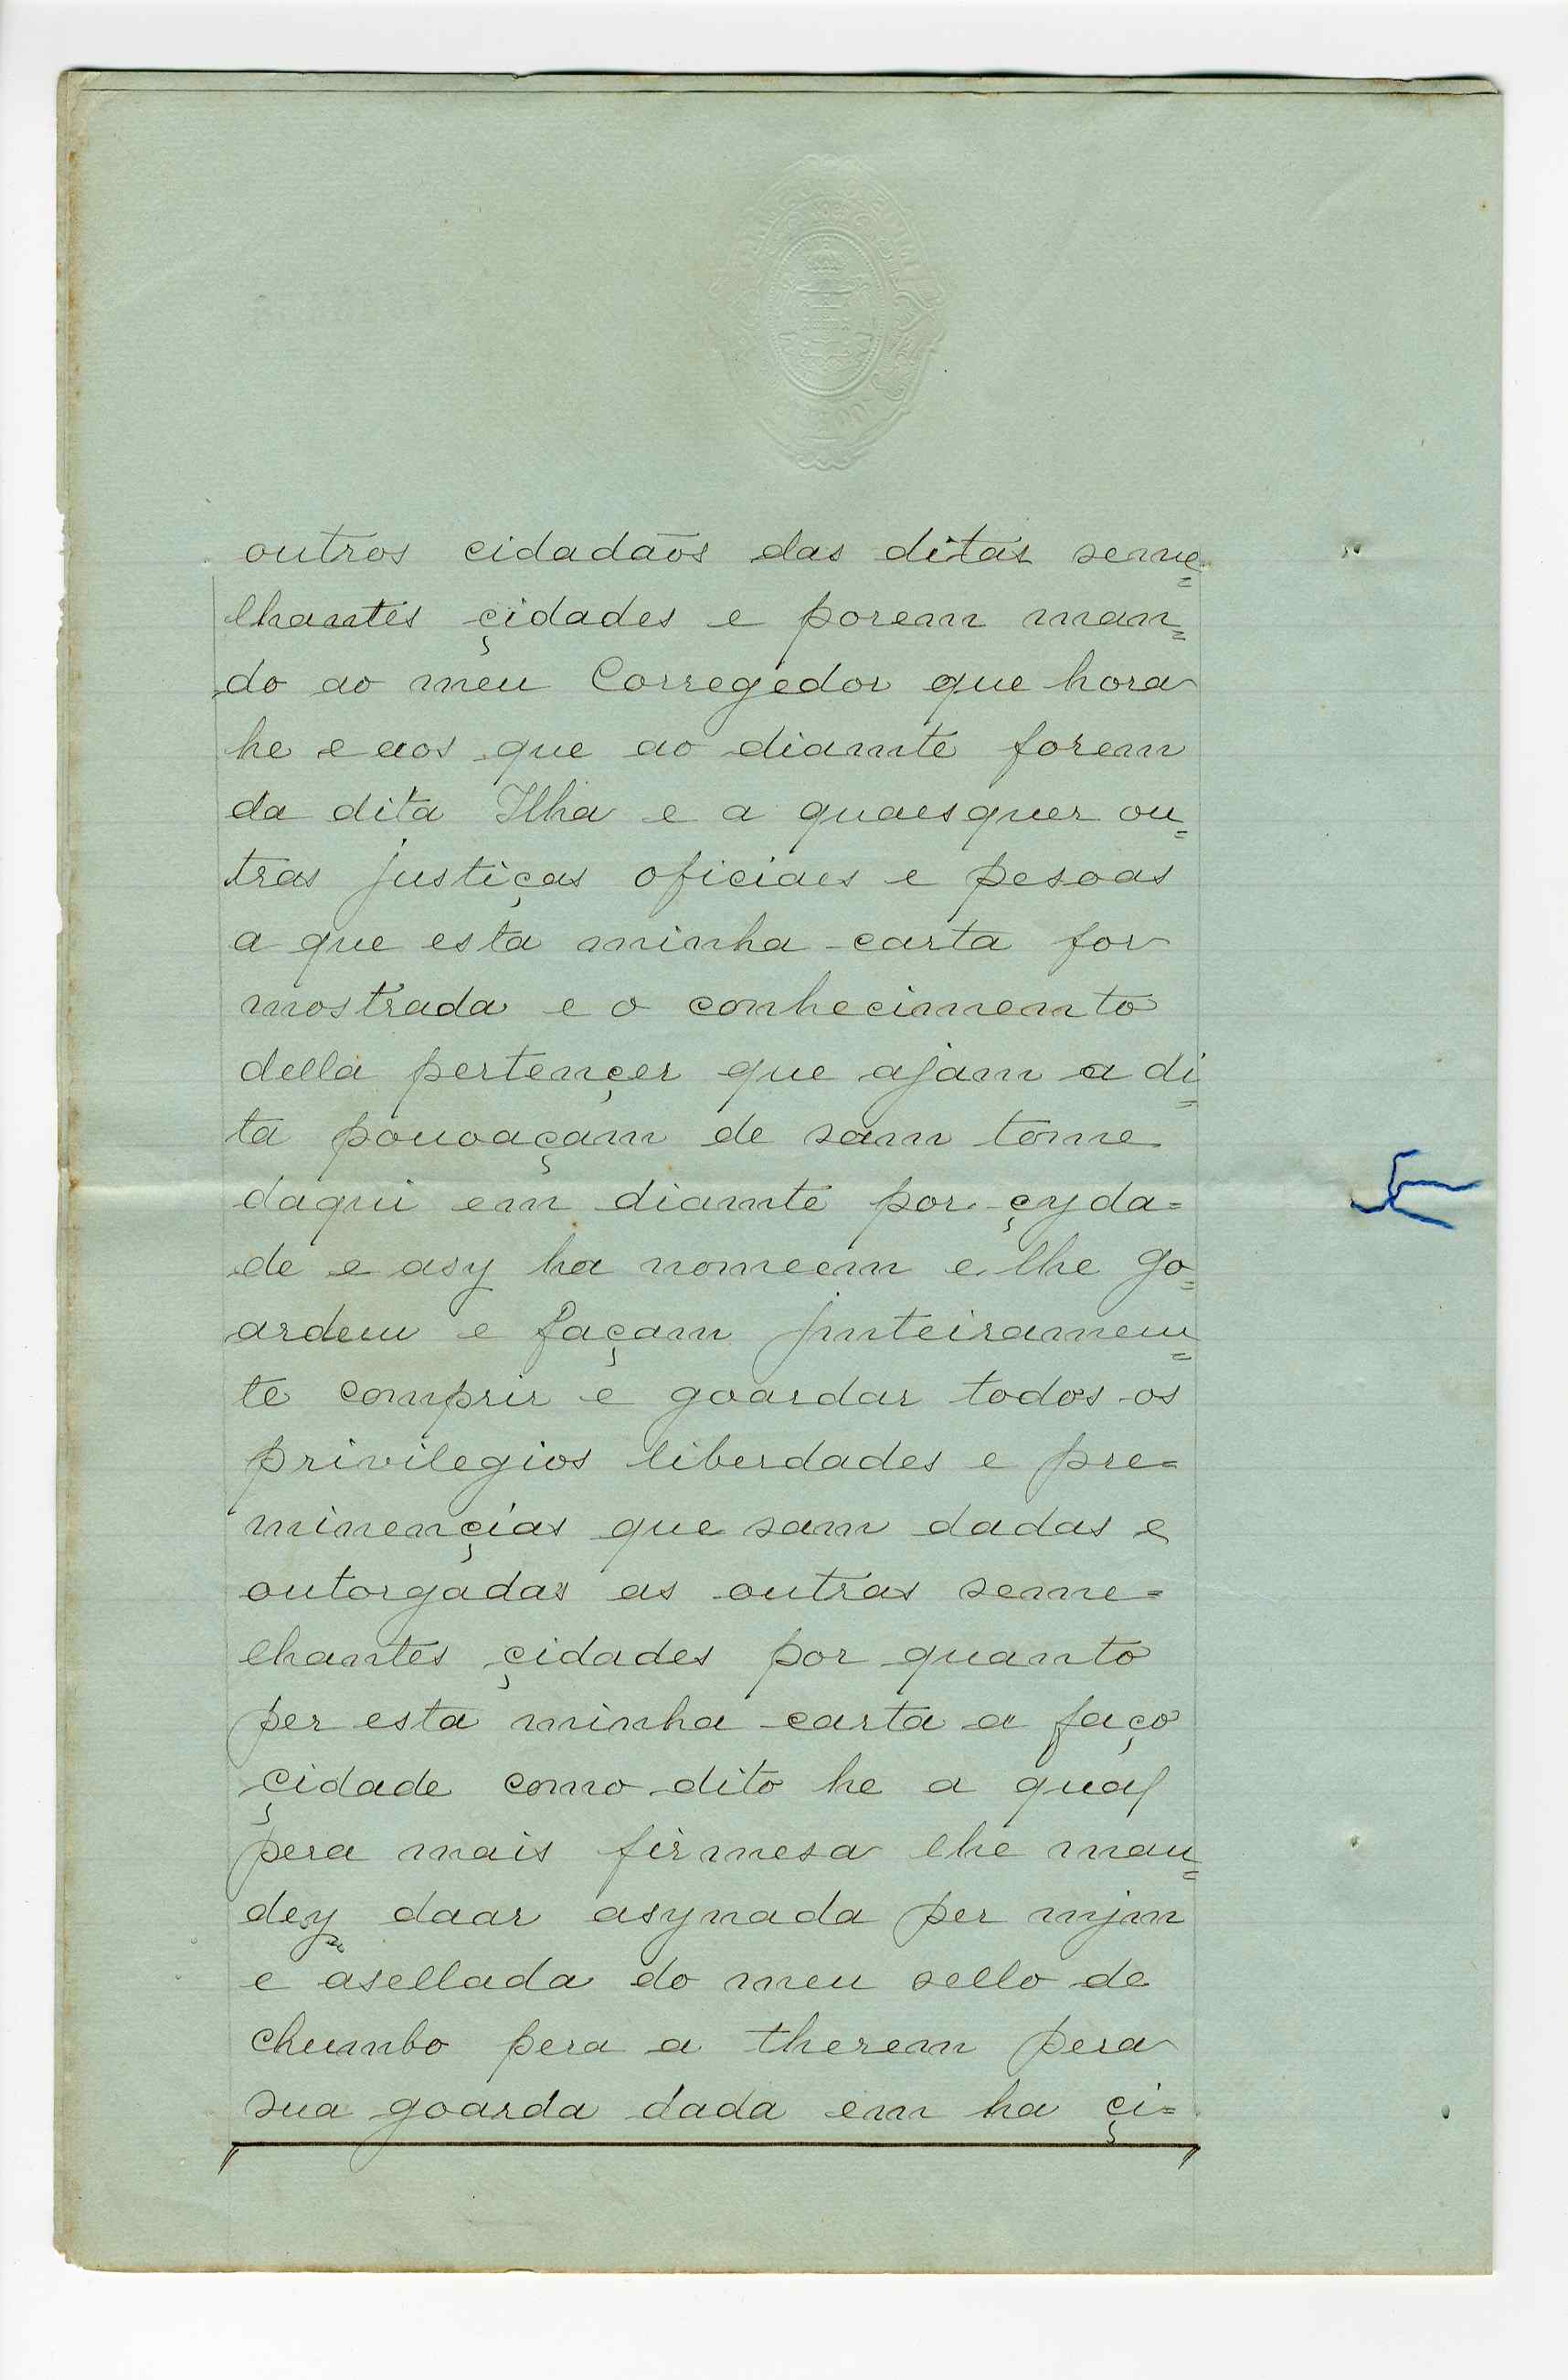 outros cidadãos das ditas seme=
lhantes çidades e porem man=
do ao meu Corregedor que hora
he e aos que ao diamte forem
da dita Ilha e a quaesquer ou=
tras justiças oficiaes e pesoas
a que esta minha carta for
mostrada e o conhecimemto
della pertençer que ajam a di=
ta pouoaçam de sam tome
daqui em diamte por çyda=
de e asy ha nomeem e lhe go=
ardem e façam jmteiramem=
te comprir e goardar todos os
privilegios liberdades e pre=
minençias que sam dadas e
outorgadas as outras seme=
lhantes çidades por quanto
per esta minha carta a faço
çidade como dito he a qual
pera mais firmesa lhe man=
dey daar asynada per mjm
e asellada do meu sello de
chumbo pera a therem pera
sua goarda dada em ha çi=